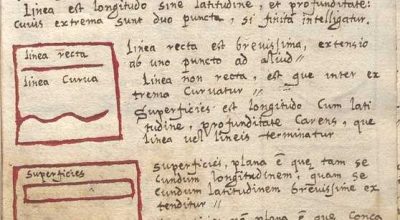 Linea est longitudo sine latitudine, et profunditate:
cuius extrema sunt duo puncta, si finita intelligatur.
Linea recta
Linea Curva
Linea recta est brevissima, extensio
ab uno puncto ad aliud //
Linea non recta, est que inter ex
trema Curvatur //
Superficies est longitudo Cum lati
tudine, profunditate Carens, que
linea vel lineis terminatur
Superficies
Superficies, plana ē que tam se
cundum longitudinem, quam se
cundum latitudinem brevissime ex
tenditur //
plana ē que conca